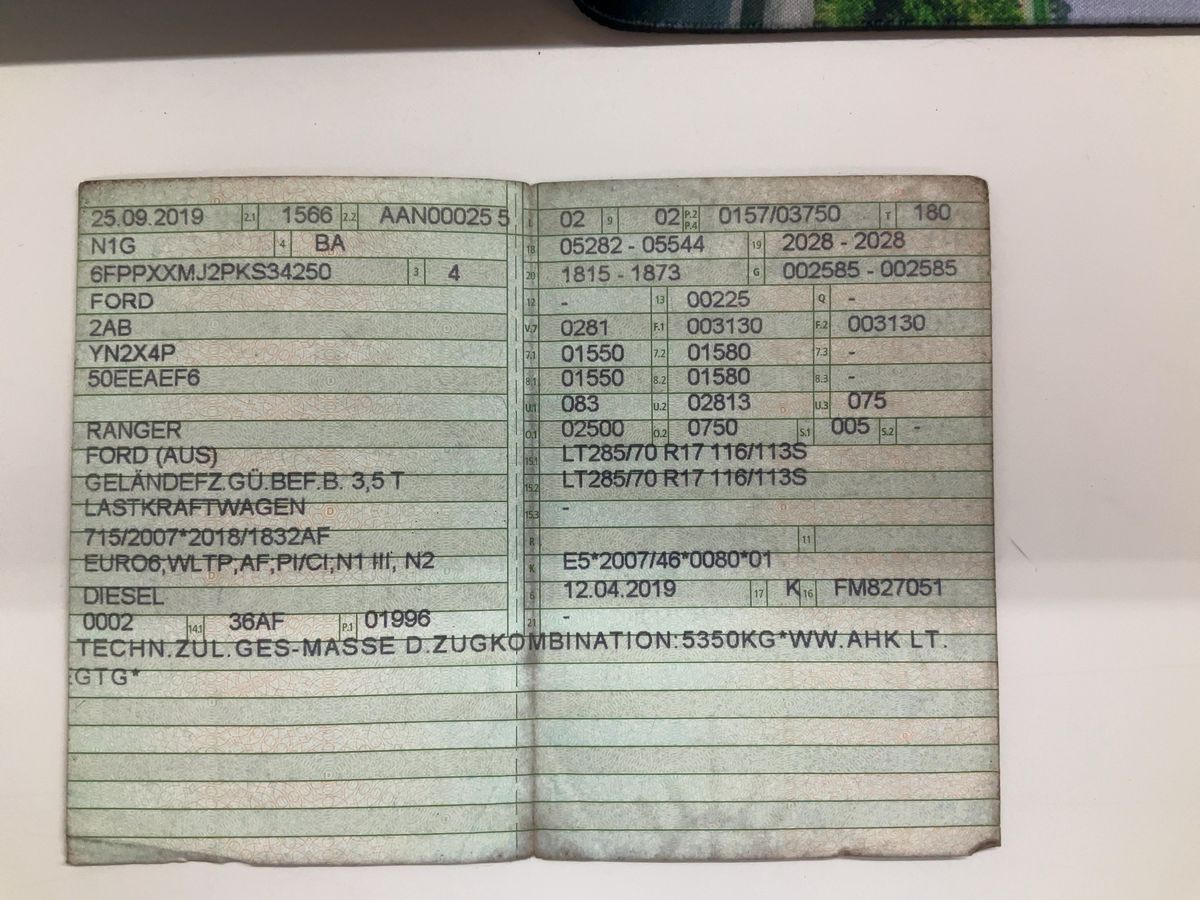 25.09.2019 2.1 1566 2.2 AAN00025 5
N1G 4 BA
6FPPXXMJ2PKS34250 3 4
FORD
2AB
YN2X4P
50EEAEF6
RANGER
FORD (AUS)
GELÄNDEFZ.GÜ.BEF.B. 3,5 T
LASTKRAFTWAGEN
715/2007*2018/1832AF
EURO6;WLTP;AF;PI/CI;N1 III, N2
DIESEL
0002 14.1 36AF P.1 01996
L 02 9 02 P.2 P.4 0157/03750 T 180
18 05282 - 05544 19 2028 - 2028
20 1815 - 1873 G 002585 - 002585
12 - 13 00225 Q -
V.7 0281 F.1 003130 F.2 003130
7.1 01550 7.2 01580 7.3 -
8.1 01550 8.2 01580 8.3 -
U.1 083 U.2 02813 U.3 075
O.1 02500 O.2 0750 S.1 005 S.2 -
15.1 LT285/70 R17 116/113S
15.2 LT285/70 R17 116/113S
15.3 -
R 11
K E5*2007/46*0080*01
6 12.04.2019 17 K 16 FM827051
21 -
TECHN.ZUL.GES-MASSE D.ZUGKOMBINATION:5350KG*WW.AHK LT.
EGTG*